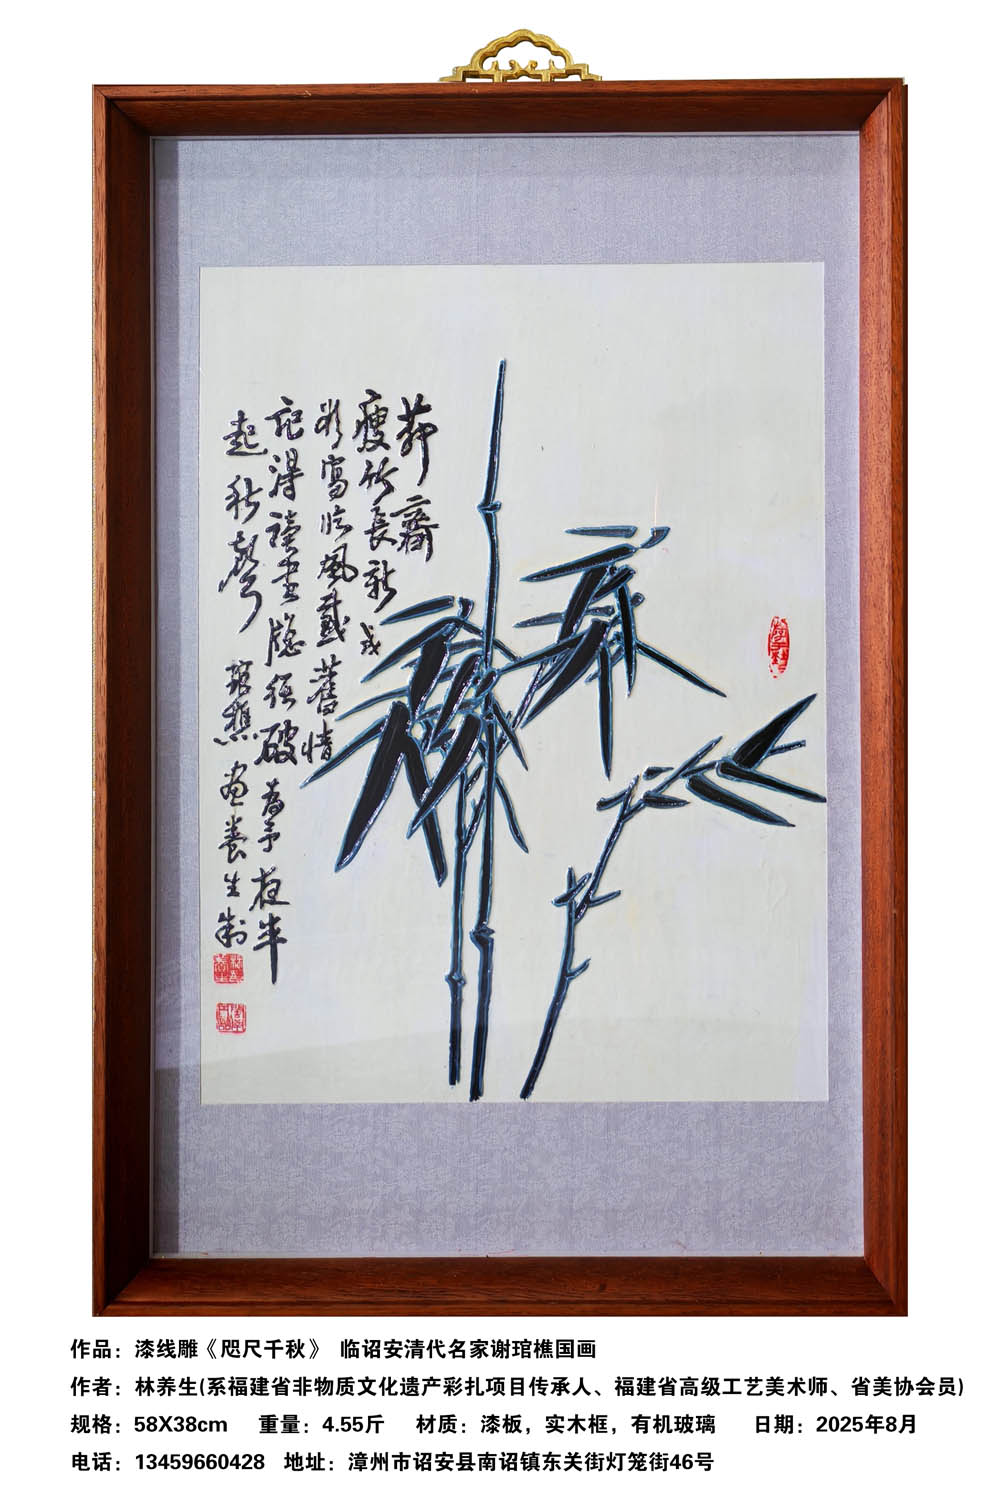 茆齋
瘦竹長新
寫臨風戴舊情
記得讀書窓破為予夜半
起秋聲
琯樵畫養生制
作品：漆线雕《咫尺千秋》 临诏安清代名家谢琯樵国画
作者：林养生(系福建省非物质文化遗产彩扎项目传承人、福建省高级工艺美术师、省美协会员)
规格：58X38cm 重量：4.55斤 材质：漆板，实木框，有机玻璃 日期：2025年8月
电话：13459660428 地址：漳州市诏安县南诏镇东关街灯笼街46号